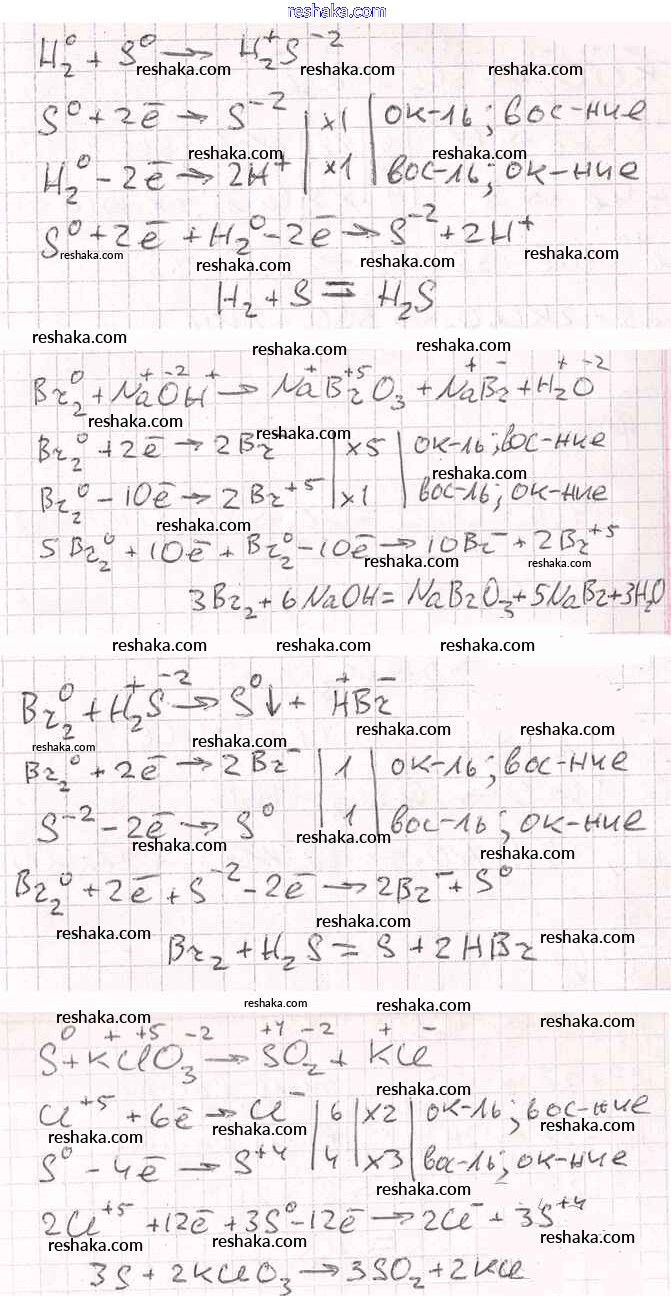 reshaka.com
H₂⁰ + S⁰ → H₂⁺S⁻²
reshaka.com reshaka.com reshaka.com
S⁰ + 2ē → S⁻² | ×1 | ок-ль; вос-ние
reshaka.com reshaka.com
H₂⁰ - 2ē → 2H⁺ | ×1 | вос-ль; ок-ние
reshaka.com reshaka.com
S⁰ + 2ē + H₂⁰ - 2ē → S⁻² + 2H⁺
reshaka.com reshaka.com reshaka.com reshaka.com
H₂ + S = H₂S
reshaka.com reshaka.com reshaka.com reshaka.com
Br₂⁰ + Na⁺O⁻²H⁺ → Na⁺Br⁺⁵O₃ + Na⁺Br⁻ + H₂⁺O⁻²
reshaka.com reshaka.com reshaka.com
Br₂⁰ + 2ē → 2Br⁻ | ×5 | ок-ль; вос-ние
reshaka.com reshaka.com
Br₂⁰ - 10ē → 2Br⁺⁵ | ×1 | вос-ль; ок-ние
reshaka.com reshaka.com
5Br₂⁰ + 10ē + Br₂⁰ - 10ē → 10Br⁻ + 2Br⁺⁵
reshaka.com reshaka.com reshaka.com
3Br₂ + 6NaOH = NaBrO₃ + 5NaBr + 3H₂O
reshaka.com reshaka.com reshaka.com reshaka.com
Br₂⁰ + H₂⁺S⁻² → S⁰↓ + H⁺Br⁻
reshaka.com reshaka.com reshaka.com reshaka.com
Br₂⁰ + 2ē → 2Br⁻ | 1 | ок-ль; вос-ние
reshaka.com reshaka.com
S⁻² - 2ē → S⁰ | 1 | вос-ль; ок-ние
reshaka.com reshaka.com reshaka.com
Br₂⁰ + 2ē + S⁻² - 2ē → 2Br⁻ + S⁰
reshaka.com reshaka.com reshaka.com
Br₂ + H₂S = S + 2HBr
reshaka.com reshaka.com reshaka.com reshaka.com
S⁰ + K⁺Cl⁺⁵O₃⁻² → S⁺⁴O₂⁻² + K⁺Cl⁻
reshaka.com reshaka.com reshaka.com
Cl⁺⁵ + 6ē → Cl⁻ | 6 | ×2 | ок-ль; вос-ние
reshaka.com reshaka.com
S⁰ - 4ē → S⁺⁴ | 4 | ×3 | вос-ль; ок-ние
reshaka.com reshaka.com
2Cl⁺⁵ + 12ē + 3S⁰ - 12ē → 2Cl⁻ + 3S⁺⁴
reshaka.com reshaka.com reshaka.com
3S + 2KClO₃ → 3SO₂ + 2KCl